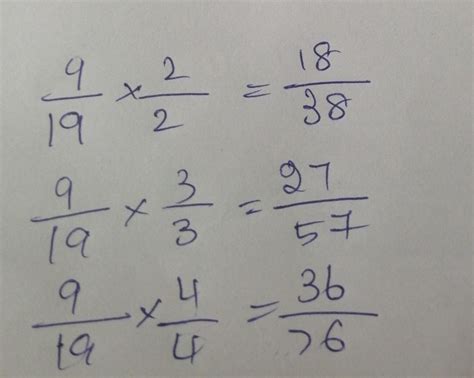 9/19 × 2/2 = 18/38
9/19 × 3/3 = 27/57
9/19 × 4/4 = 36/76